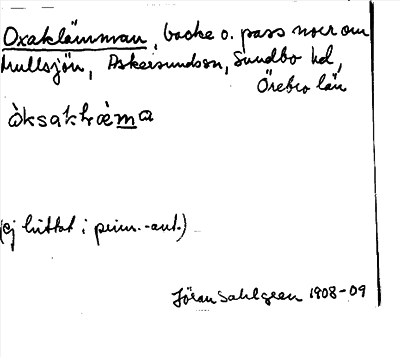 Oxaklämman, backe o. pass norr om
Mullsjön, Askersundsson, Sundbo hd,
Örebro län
àksakhræ̀ma
(ej hittat i prim.-ant.)
Jöran Sahlgren 1908-09